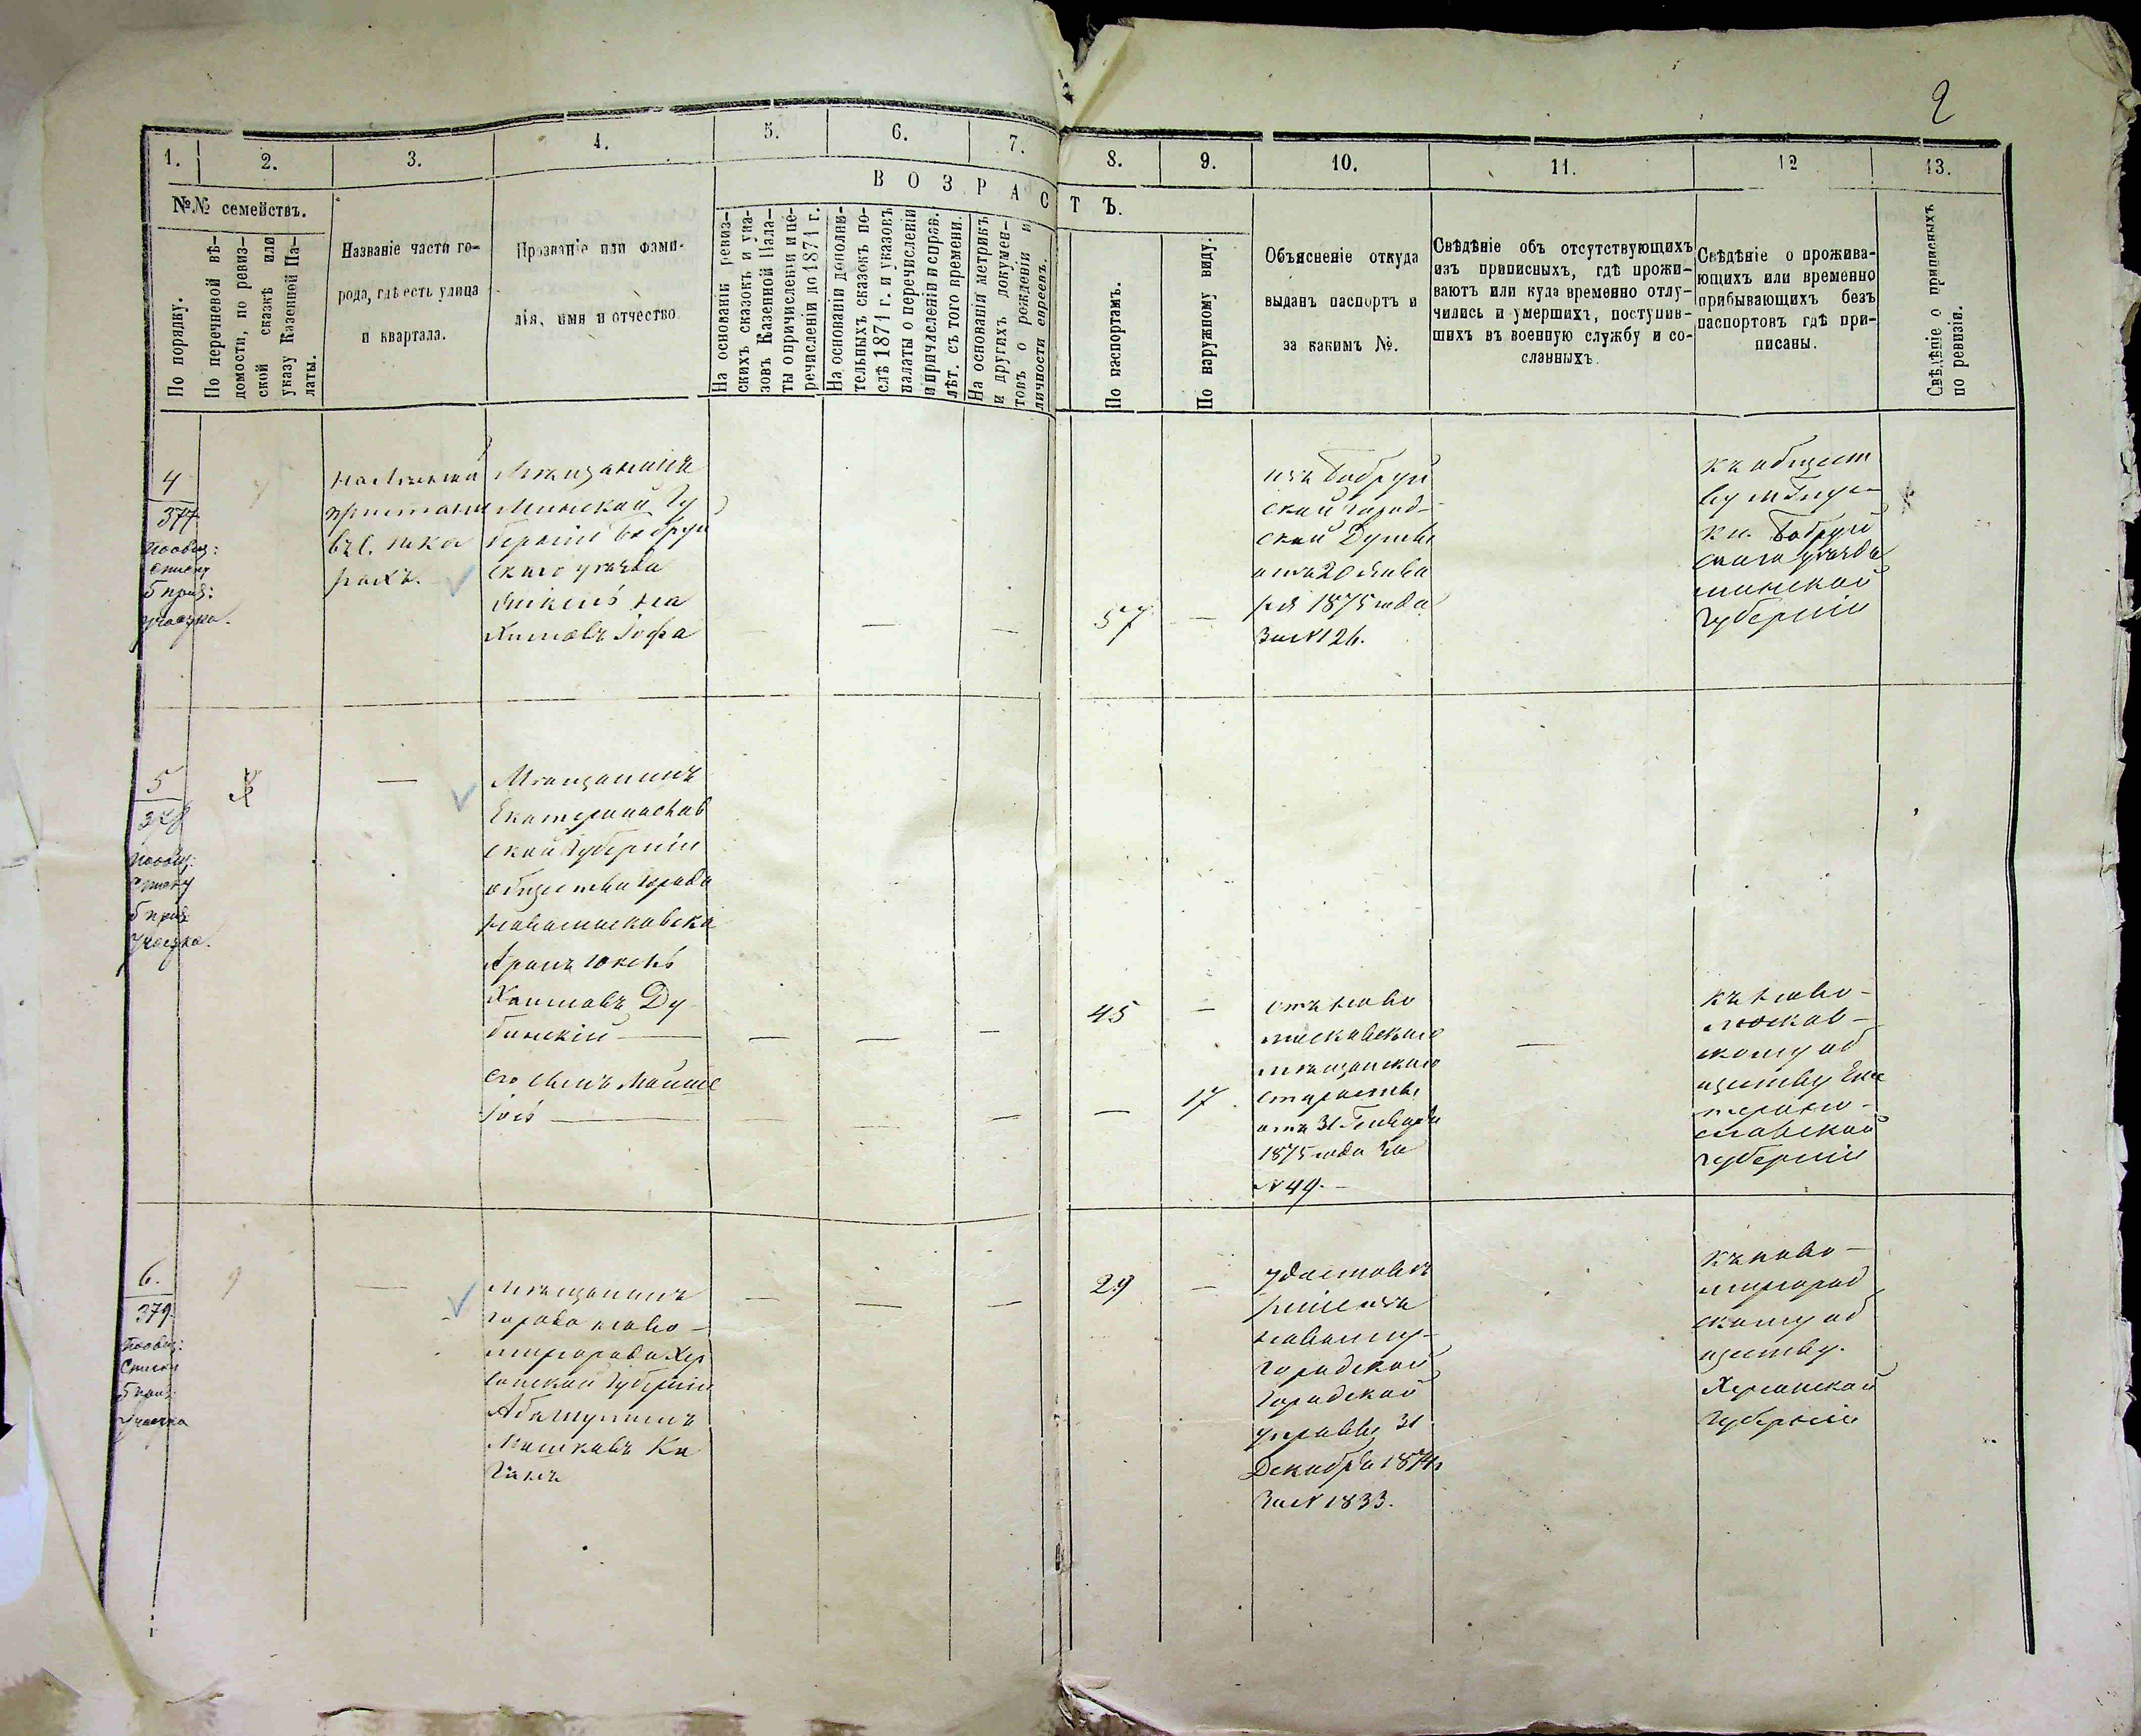 2
1.
2.
3.
4.
5.
6.
7.
8.
9.
10.
11.
12
13.
№№ семействъ.
В О З Р А С Т Ъ.
По порядку.
По перечневой вѣ-
домости, по ревиз-
ской сказкѣ или
указу Казенной Па-
латы.
Названіе части го-
рода, гдѣ есть улица
и квартала.
Прозваніе или фами-
лія, имя и отчество
На основаніи ревиз-
скихъ сказокъ и ука-
зовъ Казенной Пала-
ты о причисленіи и пе-
речисленіи до 1871 г.
На основаніи дополни-
тельныхъ сказокъ по-
слѣ 1871 г. и указовъ
палаты о перечисленіи
и причисленіи и справ.
лѣт. съ того времени.
На основаніи метрикъ
и другихъ докумен-
товъ о рожденіи и
личности евреевъ.
По паспортамъ.
По наружному виду.
Объясненіе откуда
выданъ паспортъ и
за какимъ №.
Свѣдѣніе объ отсутствующихъ
изъ приписныхъ, гдѣ прожи-
ваютъ или куда временно отлу-
чились и умершихъ, поступив-
шихъ въ военную службу и со-
сланныхъ.
Свѣдѣніе о прожива-
ющихъ или временно
прибывающихъ безъ
паспортовъ гдѣ при-
писаны.
Свѣдѣніе о приписныхъ
по ревизіи.
4
377
Пообщ:
списку
5 приз:
участка.
пристани
Мѣщанинъ
Минской Гу
берніи Бобруй
скаго уѣзда
57
изъ Бобруй
ской Город-
ской Думы
1875 года
За №126.
къ общест
ву
Бобруй
скаго уѣзда
Минской
Губерніи
5
378
Пообщ:
списку
5 приз
участка.
Мѣщанинъ
Екатеринослав
ской Губерніи
общества города
Новомосковска
Хаимовъ Ду
бинскій
его сынъ
45
17
отъ Ново
московскаго
мѣщанскаго
старосты
отъ 31 Января
1875 года За
№49.
къ Ново-
москов-
скому об
ществу Ека
терино-
славской
Губерніи
6.
379.
Пообщ:
списку
5 приз:
участка
Мѣщанинъ
города Ново-
миргорода Хер
сонской Губерніи
Мошковъ Ка
ганъ
29
Новомир-
городской
Городской
управы 31
Декабря 1874г
За №1833.
къ Ново-
миргород
скому об
ществу.
Херсонской
Губерніи